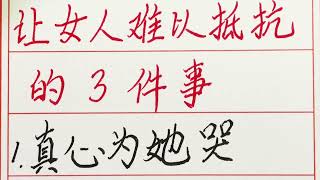 让女人难以抵抗
的3件事
1.真心为她哭